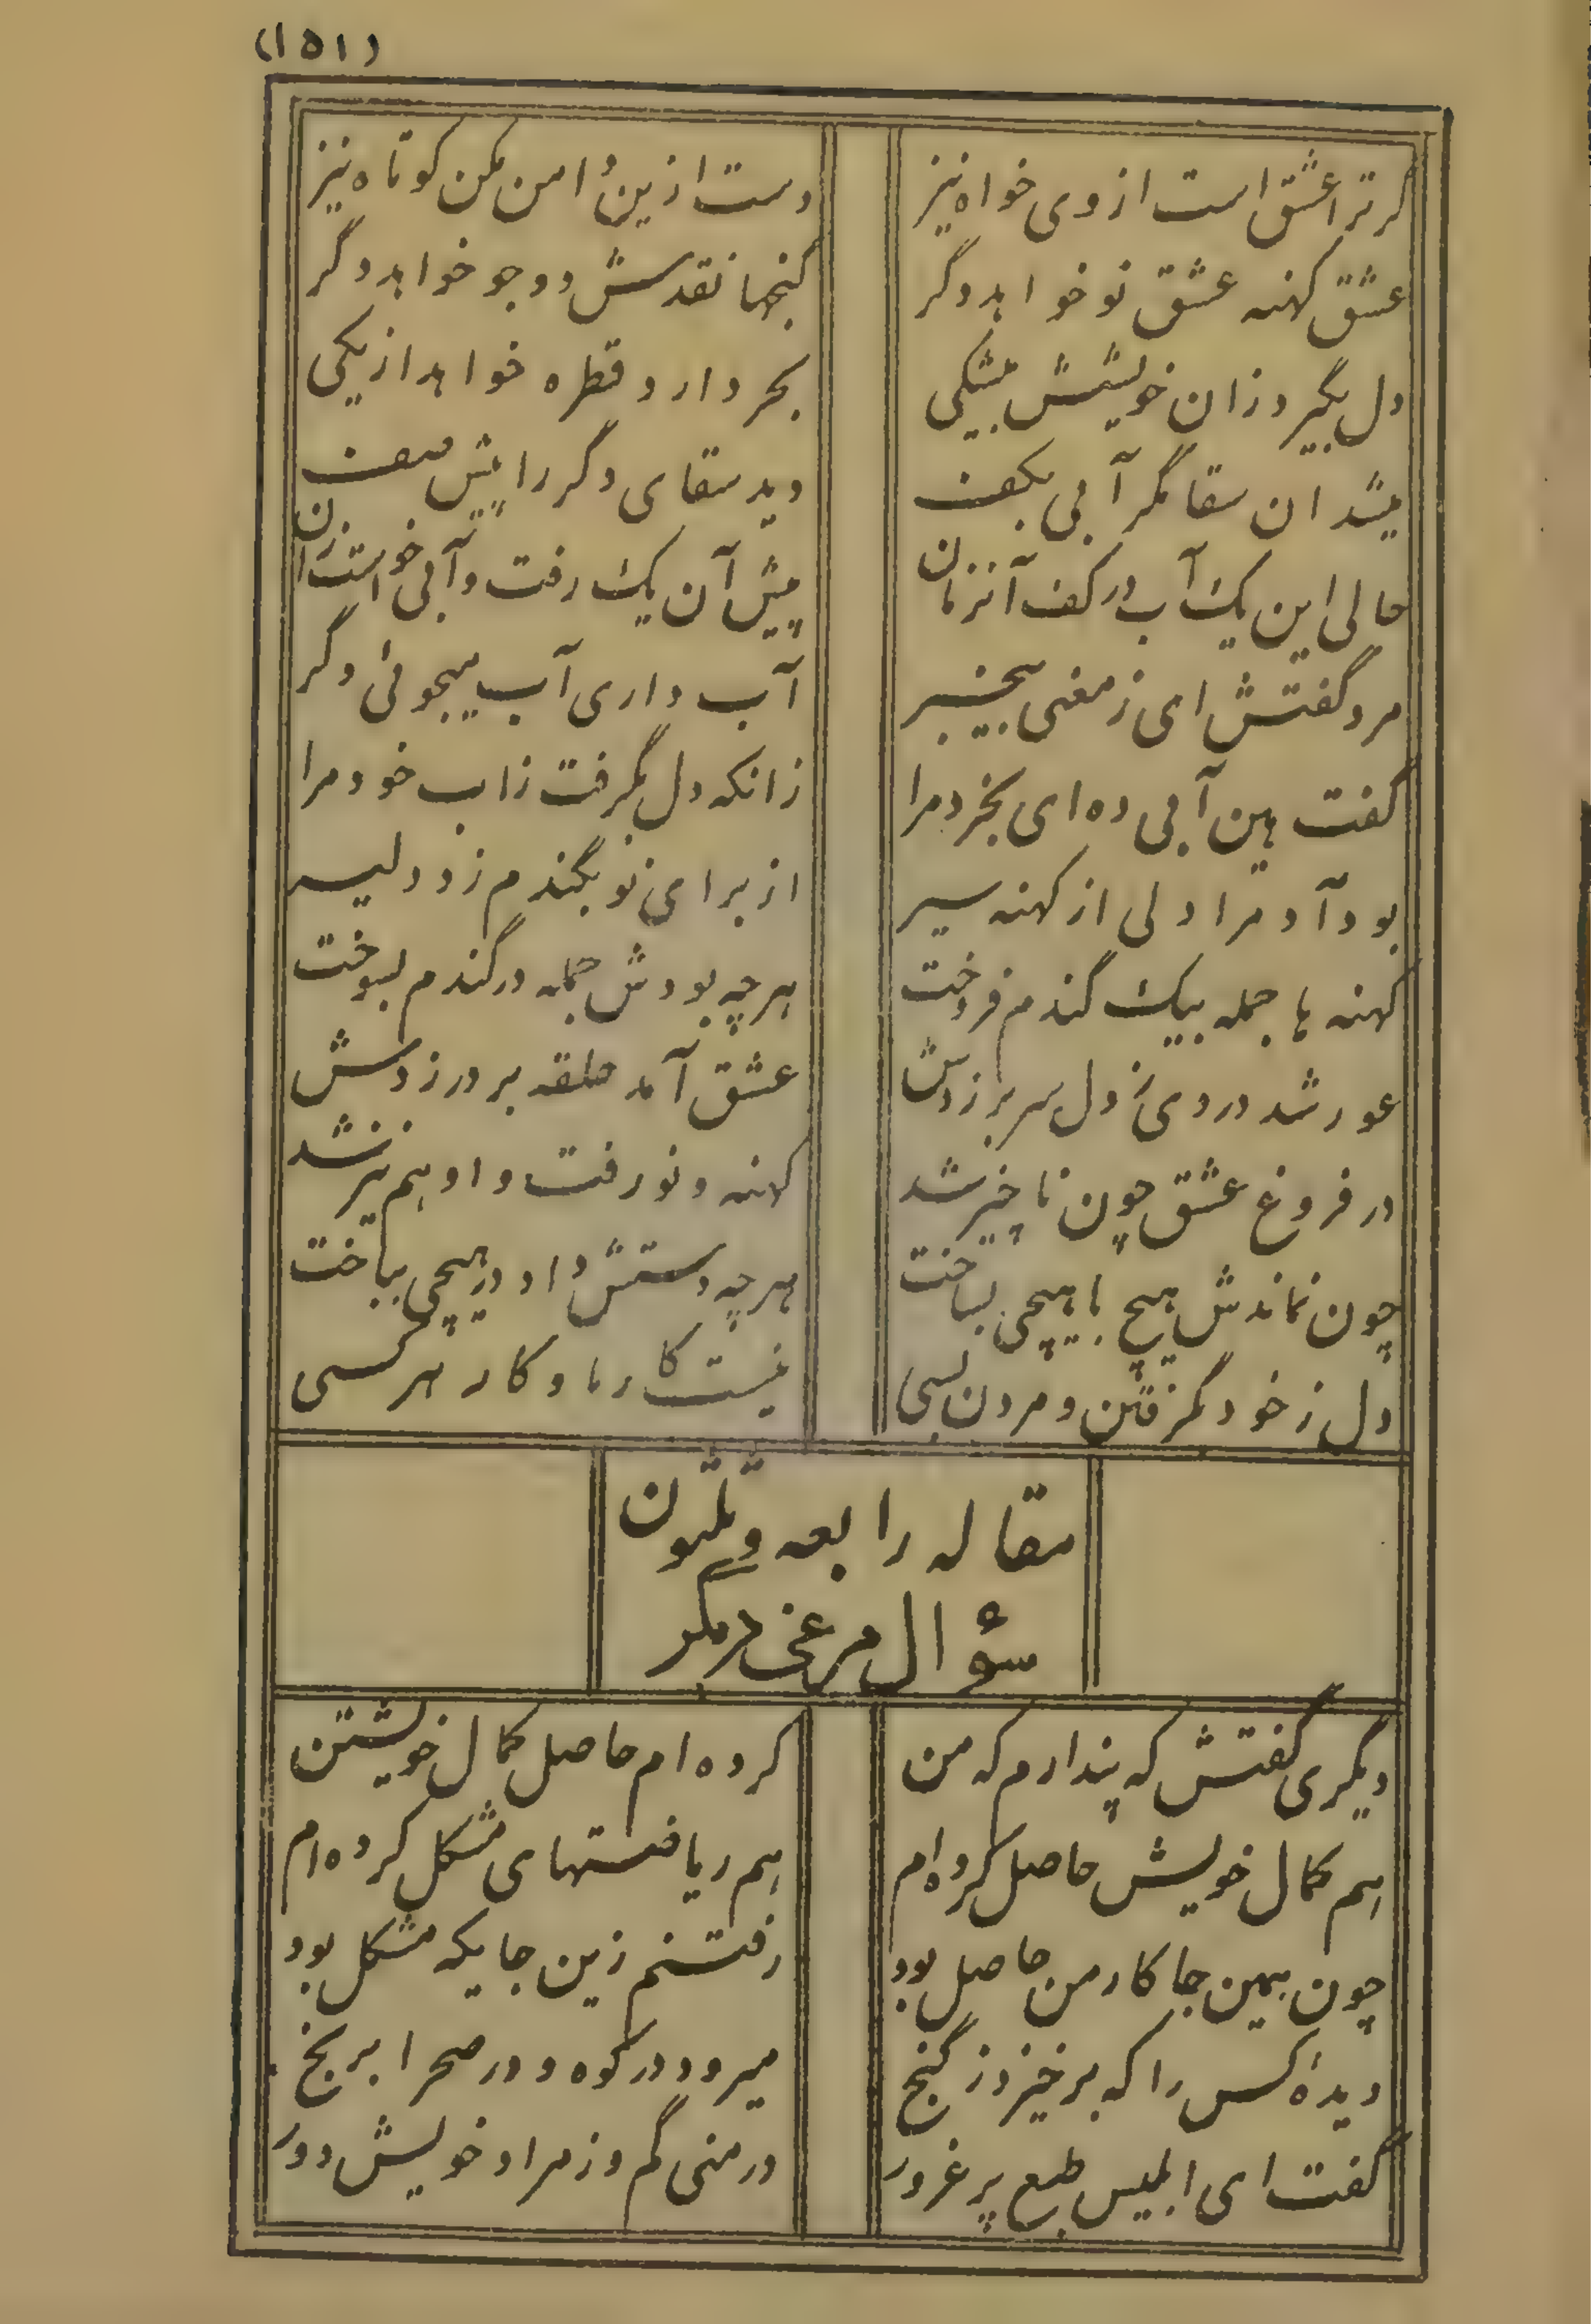 (۱۵۱)
گر ترا عشق است از وی خواه نیز
دست ازین دامن مکن کوتاه نیز
عشق کهنه عشق نو خواهد دگر
گنجها نقدش دو جو خواهد دگر
دل بگیرد زان خویشش بیشکی
بحر دارد قطره خواهد از یکی
میشد ان سقا مگر آبی بکف
دید سقای دگر را پیش صف
حالی این یک آب در کف آنزمان
پیش آن یک رفت و آبی خواست ازان
مرد گفتش ای ز معنی بیخبر
آب داری آب میجوئی دگر
گفت هین آبی ده ای بخرد مرا
زانکه دل بگرفت زاب خود مرا
بود آدم را دلی از کهنه سیر
از برای نو بگندم زد دلیر
کهنه ها جمله بیک گندم فروخت
هرچه بودش جمله در گندم بسوخت
عور شد دردی ز دل سر بر زدش
عشق آمد حلقه بر در زدش
در فروغ عشق چون ناچیز شد
کهنه و نو رفت و او هم نیز شد
چون نماندش هیچ با هیچی بساخت
هرچه دستش داد در هیچی بباخت
دل ز خود بگرفتن و مردن بسی
نیست کار ما و کار هر کسی
مقاله رابعه وثلثون
سؤال مرغی دیگر
دیگری گفتش که پندارم که من
کرده ام حاصل کمال خویشتن
هم کمال خویش حاصل کرده ام
هم ریاضتهای مشکل کرده ام
چون همین جا کار من حاصل بود
رفتنم زین جایکه مشکل بود
دیدهٔ کس را که برخیزد ز گنج
میرود در کوه و در صحرا برنج
گفت ای ابلیس طبع پر غرور
در منی گم وز مراد خویش دور